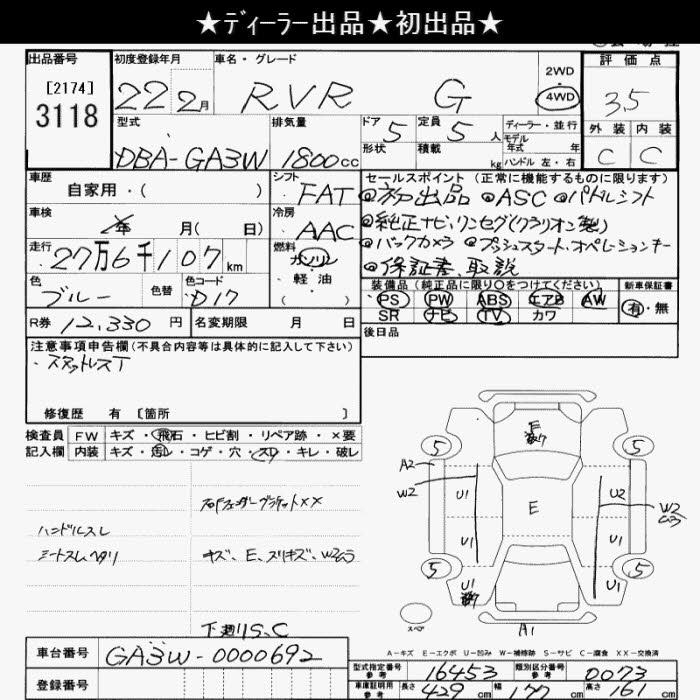 ★ディーラー出品★初出品★
出品番号 初度登録年月 車名・グレード 2WD 評価点
[2174] 3118 22 2月 RVR G 4WD 3.5
型式 排気量 ドア 5 定員 5人 ディーラー・並行 外装 内装
形状 積載 kg モデル年式 年 ハンドル 左・右
DBA-GA3W 1800cc C C
車歴 シフト FAT セールスポイント (正常に機能するものに限ります)
自家用・( ) ◎初出品 ◎ASC ◎パドルシフト
車検 年 月( 日) 冷房 AAC ◎純正ナビ,ワンセグ(クラリオン製)
走行 27万6千107km 燃料 ガソリン ◎バックカメラ ◎プッシュスタート,オペレーションキー
・軽油 ・( ) ◎保証書,取説
色 ブルー 色替 色コード D17
装備品 (純正品に限り〇をつけてください) 新車保証書
PS PW ABS エアB AW 有・無
SR ナビ TV カワ
R券 12,330円 名変期限 月 日
後日品
注意事項申告欄 (不具合内容等は具体的に記入して下さい)
・スタットレスT
修復歴 有 [箇所 ]
検査員 FW キズ・飛石・ヒビ割・リペア跡・×要
記入欄 内装 キズ・汚レ・コゲ・穴・スレ・キレ・破レ
ハンドルスレ
シートスレ,ヘタリ
キズ、E、スリキズ、W2ムラ
下廻りS、C
E
5 5
A2
W2 U1 U2 W2
E
U1 U1
5 5
U1 U1
スペア A1
A-キズ E-エクボ U-凹み W-補修跡 S-サビ C-腐食 XX-交換済
車台番号 GA3W-0000692
型式指定番号 参考 16453 類別区分番号 参考 0073
登録番号 車庫証明用 参考 長さ 429cm 幅 177cm 高さ 161cm